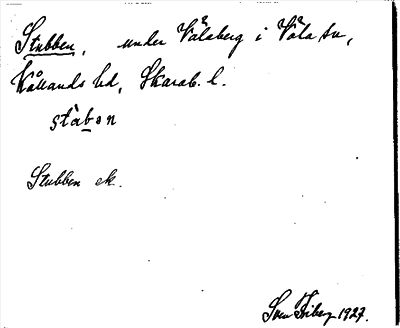 Stubben, under Våleberg i Våla sn,
Kållands hd, Skarab. l.
stabən
Stubben ek.
Sven Friberg 1927.